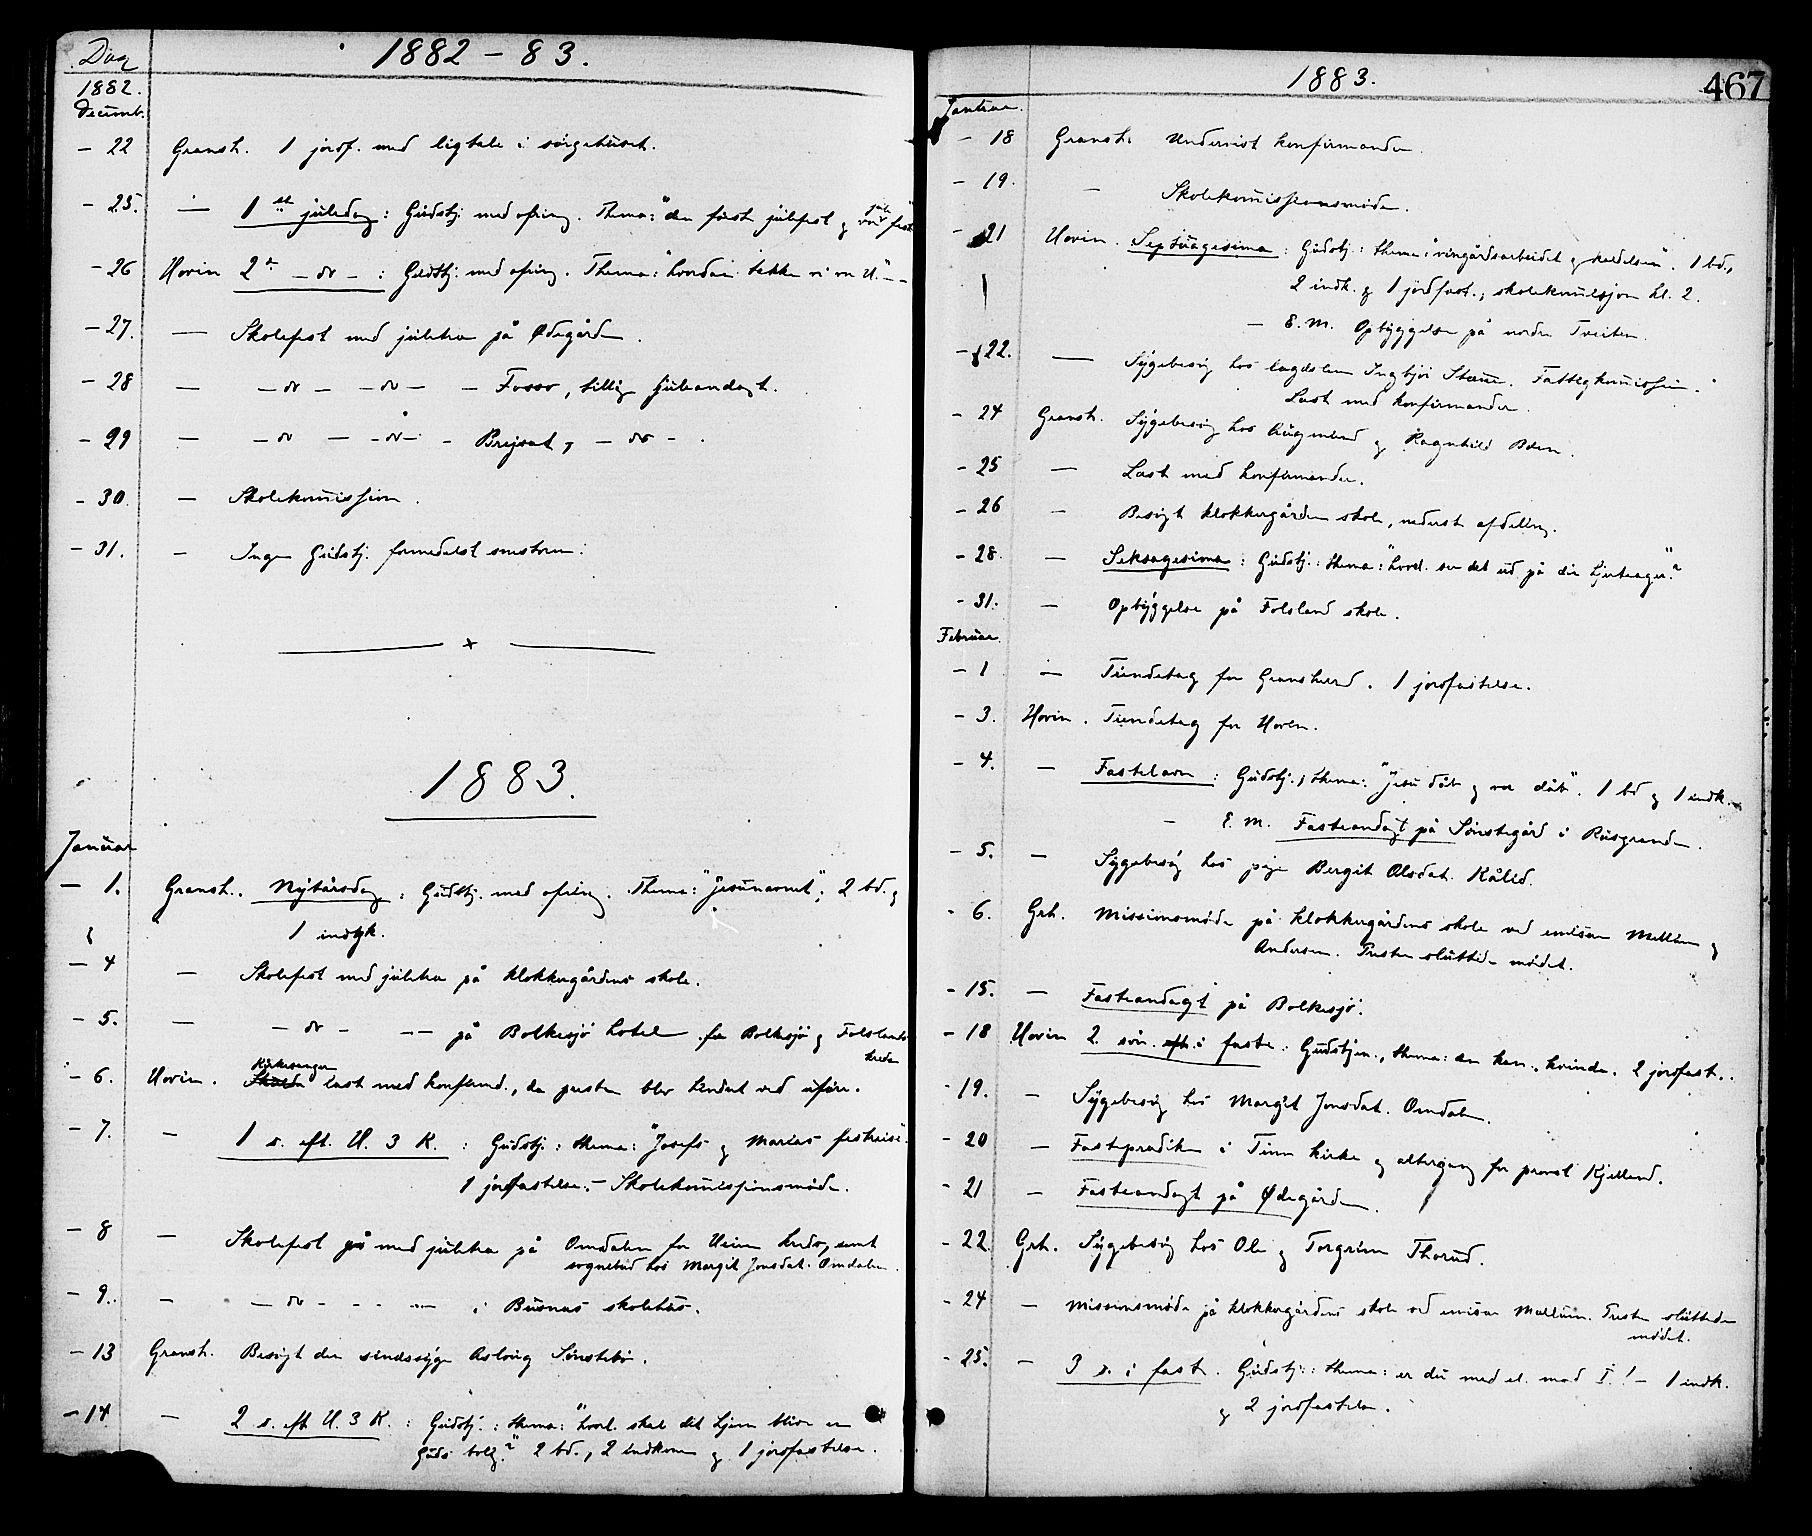 Dag
1882-83.
1882.
Decemb.
- 22 Gransh. 1 jordf. med ligtale i sørgehuset.
- 25. — 1ste juledag: Gudstj. med ofring. Thema: "den første julefest og vor jule fest
- 26 Hovin 2den — do — : Gudstj. med ofring. Thema: "hvordan takke vi
- 27. — Skolefest med juletræ på Ødegården.
- 28 — — do — — do — — Fosso, tillige juleandagt.
- 29 — — do — — do — - Brejsæt, — do — .
- 30. — Skolekomission.
- 31. — Ingen Gudstj. formedelst snestorm.
1883.
Januar
- 1. Gransh. Nytårsdag: Gudstj. med ofring. Thema: "Jesunavnet"; 2 bd. og
1 indgk.
- 4 — Skolefest med juletræ på klokkergårdens skole.
- 5. — — do — — på Bolkesjø hotel for Bolkesjø og Folslands
kreda
- 6. Hovin. Kirkesanger læst med konfirmd., da presten blev hindret ved uføre.
- 7. — 1 s. eft. H. 3 K.: Gudstj.: thema: "Josefs og Marias festreise".
1 jordfastelse. - Skolekomissionsmøde.
- 8 — Skolefest på med juletræ på Omdalen for Veim kreds, samt
sognebud hos Margit Jonsdat. Omdalen.
- 9. — — do — - - — i Busnes skolehus.
- 13 Gransh. Besøgt den sindssyge Aslaug Sønstebø.
- 14 — 2 s. eft H. 3 K.: Gudstj.: thema: "hvorl. skal det hjem blive en
Guds bolig?" 2 bd., 2 indkone og 1 jordfastelse.
1883.
467
Januar.
- 18 Gransh. Undervist konfirmander.
- 19. — Skolekomissionsmøde.
- 21 Hovin. Septuagesima: Gudstj.: thema: "vingårdsarbeidet og kaldelsen". 1 bd.,
2 indk. og 1 jordfast., skolekomission kl. 2.
— E.M. Opbyggelse på nordre Tveiten.
- 22. — Sygebesøg hos lægdslem Ingebjør Stæne. Fattigkomission.
Læst med konfirmander.
- 24 Gransh. Sygebesøg hos Augmund og Ragnhild Bøen.
- 25 — Læst med konfirmander.
- 26 — Besøgt klokkergården skole, nederste afdeling.
- 28. — Seksagesima: Gudstj.: thema: "hvorl. ser det ud på din hjerteager?"
- 31. — Opbyggelse på Folsland skole.
Februar.
- 1 — Tiendetag for Gransherred. 1 jordfastelse.
- 3. Hovin. Tiendetag for Hovin.
- 4. — Fastelavn: Gudstj., thema: "Jesu dåb og vor dåb". 1 bd og 1 indk.
— E.M. Fasteandagt på Sønstegård i Rusgrenden.
- 5. — Sygebesøg hos pige Bergit Olsdat. Kåled.
- 6. Grh. Missionsmøde på klokkergårdens skole ved emisær Mellum og
Andersen. Presten sluttede mødet.
- 15. — Fasteandagt på Bolkesjø.
- 18 Hovin 2. søn. eft. i faste: Gudstjen., thema: den kan. kvinde. 2 jordfast..
- 19. — Sygebesøg hos Margit Jonsdat. Omdalen.
- 20 — Fasteprædiken i Tinn kirke og altergang for provst Kjelland.
- 21 — Fasteandagt på Ødegården.
- 22. Grh. Sygebesøg hos Ole og Torgrim Thorud.
- 24 — Missionsmøde på klokkergårdens skole ved emisær Mellum. Presten sluttede
mødet.
- 25. — 3 s. i fast. Gudstj.: thema: er du med el. mod J.! - 1 indk.
og 2 jordfastelse.